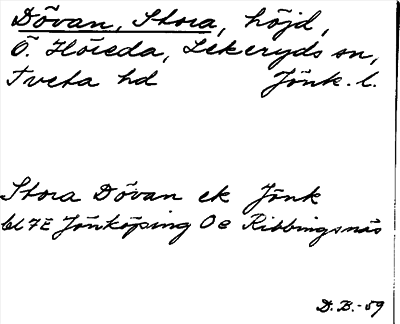 Dövan, Stora, höjd,
Ö. Höreda, Lekeryds sn,
Tveta hd Jönk. l.
Stora Dövan ek Jönk
bl 7E Jönköping Oe Ribbingsnäs
D. B. -59